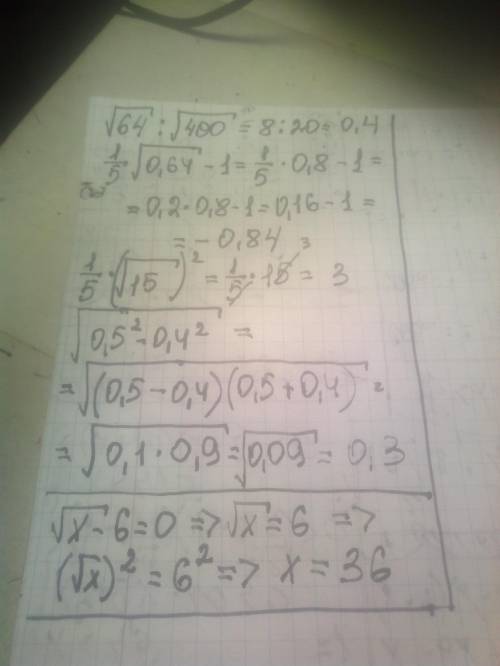 √64 : √400 = 8 : 20 = 0,4
1/5 √0,64 - 1 = 1/5 · 0,8 - 1 =
= 0,2 · 0,8 - 1 = 0,16 - 1 =
= - 0,84
1/5 · (√15)² = 1/5 · 15 3 = 3
√0,5² - 0,4² =
= √(0,5 - 0,4)(0,5 + 0,4) =
= √0,1 · 0,9 = √0,09 = 0,3
√x - 6 = 0 => √x = 6 =>
(√x)² = 6² => x = 36